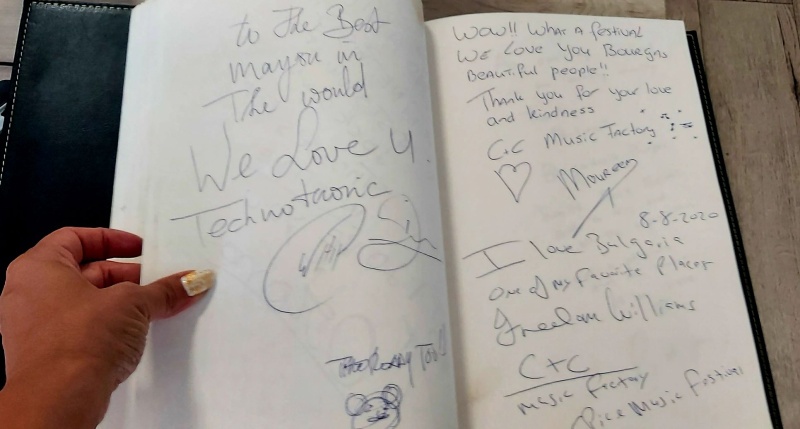 to The Best
mayor in
The would
We Love U.
Technotronic
Wow!! What a festival
We love you Bourgas
Beautiful people!!
Thank you for your love
and kindness
C+C Music Factory
Maureen
8-8-2020
I love Bulgaria
one of my favorite Places
Freedom Williams
C+C
Music Factory
Music Festival